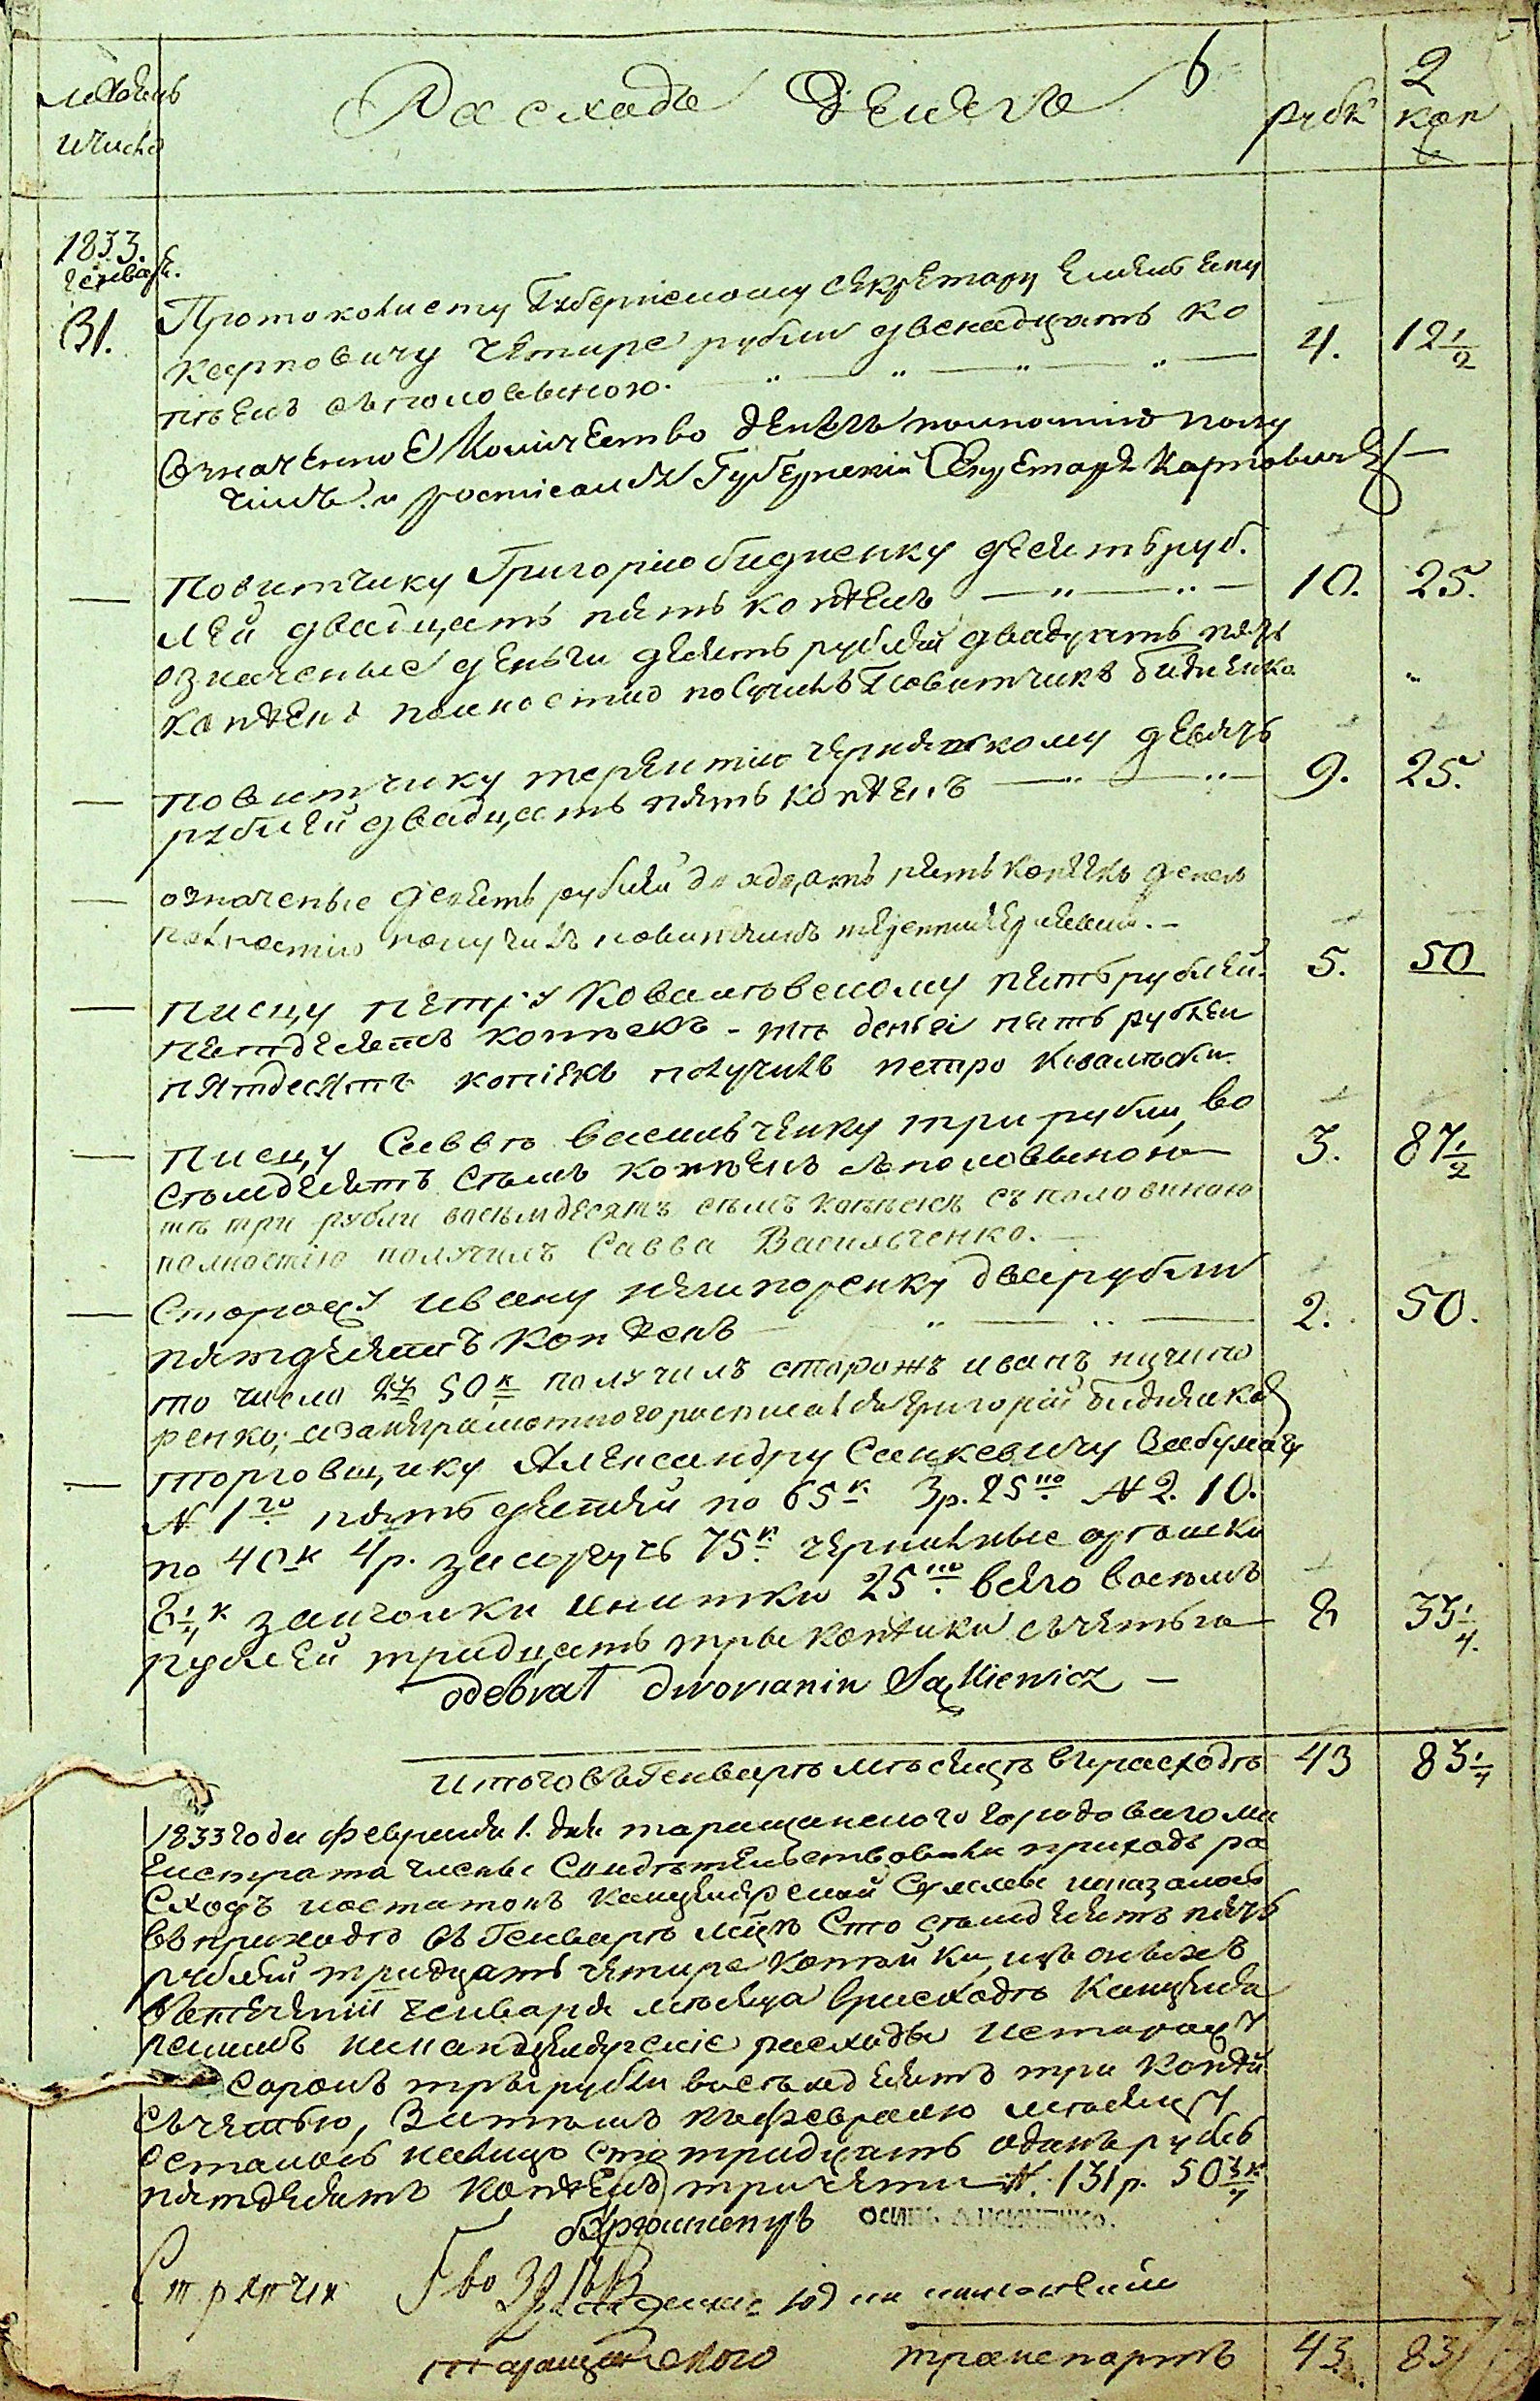 2
Месяцъ
и число
Расходъ денегъ
рубли
коп
1833.
генваря.
31.
Протоколисту Губернскому Секретарю
Карповичу четыре рубли двенадцать ко
пѣекъ съ половыною.
4.
12 1/2
Означенное количество денегъ полностию полу
чилъ и росписался Губернский Секретарь Карповичъ
Повитчику Григорию Бидненку десять руб.
лей двадцать пять копѣекъ
10.
25.
означеные деньги десять рублей двадцать пять
копѣекъ полностию получилъ Повитчикъ Бидненко
повитчику терентию чернявскому девять
рублей двадцать пять копѣекъ
9.
25.
означеные девять рублей двадцать пять копѣекъ денегъ
полностию получилъ повитчикъ
писцу петру Ковальовскому пять рублей
пятдесятъ копѣекъ - тѣ деньги пять рублей
5.
50
пятдесятъ копіекъ получилъ петро
писцу Савве васильченку три рубли, во
семдесятъ семъ копѣекъ съ половыною
3.
87 1/2
тѣ три рубли восемдесятъ семъ копѣекъ съ половиною
полностію получилъ Савва Васильченко.
Сторожу ивану нечипоренку два рубли
пятдесятъ копѣекъ
2.
50.
то число 2р 50к получилъ сторожъ иванъ ничипо
ренко; а за неграмотного росписался Григорій Бидненко
торговщику Александру Санкевичу за бумагу
№ 1го пять дестей по 65к 3р. 25 № 2. 10.
по 40к 4р. за сургучъ 75к чернильные орешки
8 1/4к за иголки и нитки 25 всего восемъ
рублей тридцать три копѣйки съ четью
8
33 1/4.
odebrał dworianin Sąkiewicz
итого въ Генварѣ мѣсяцѣ въ расходѣ
43
83 1/4
1833 года февраля 1. дня таращанского городоваго ма
гистрата члены свидѣтельствовали приходъ ра
сходъ и остатокъ канцелярской Суммы и оказалось
въ приходѣ въ Генварѣ мцѣ сто семдесятъ пять
рублей тридцать четыре копѣйки, изъ оныхъ
втечении генваря мѣсяца врасходѣ
расходы и сторожу
сорокъ три рубли восемдесятъ три копѣй
съчетью, Затемъ къ февралю мѣсяцу
осталось налицо сто тридцать одинъ рубль
пятдесятъ копѣекъ три чети №. 131р. 50 3/4к
бургомистръ
Стряпчий
таращанского
транспортъ
43.
83